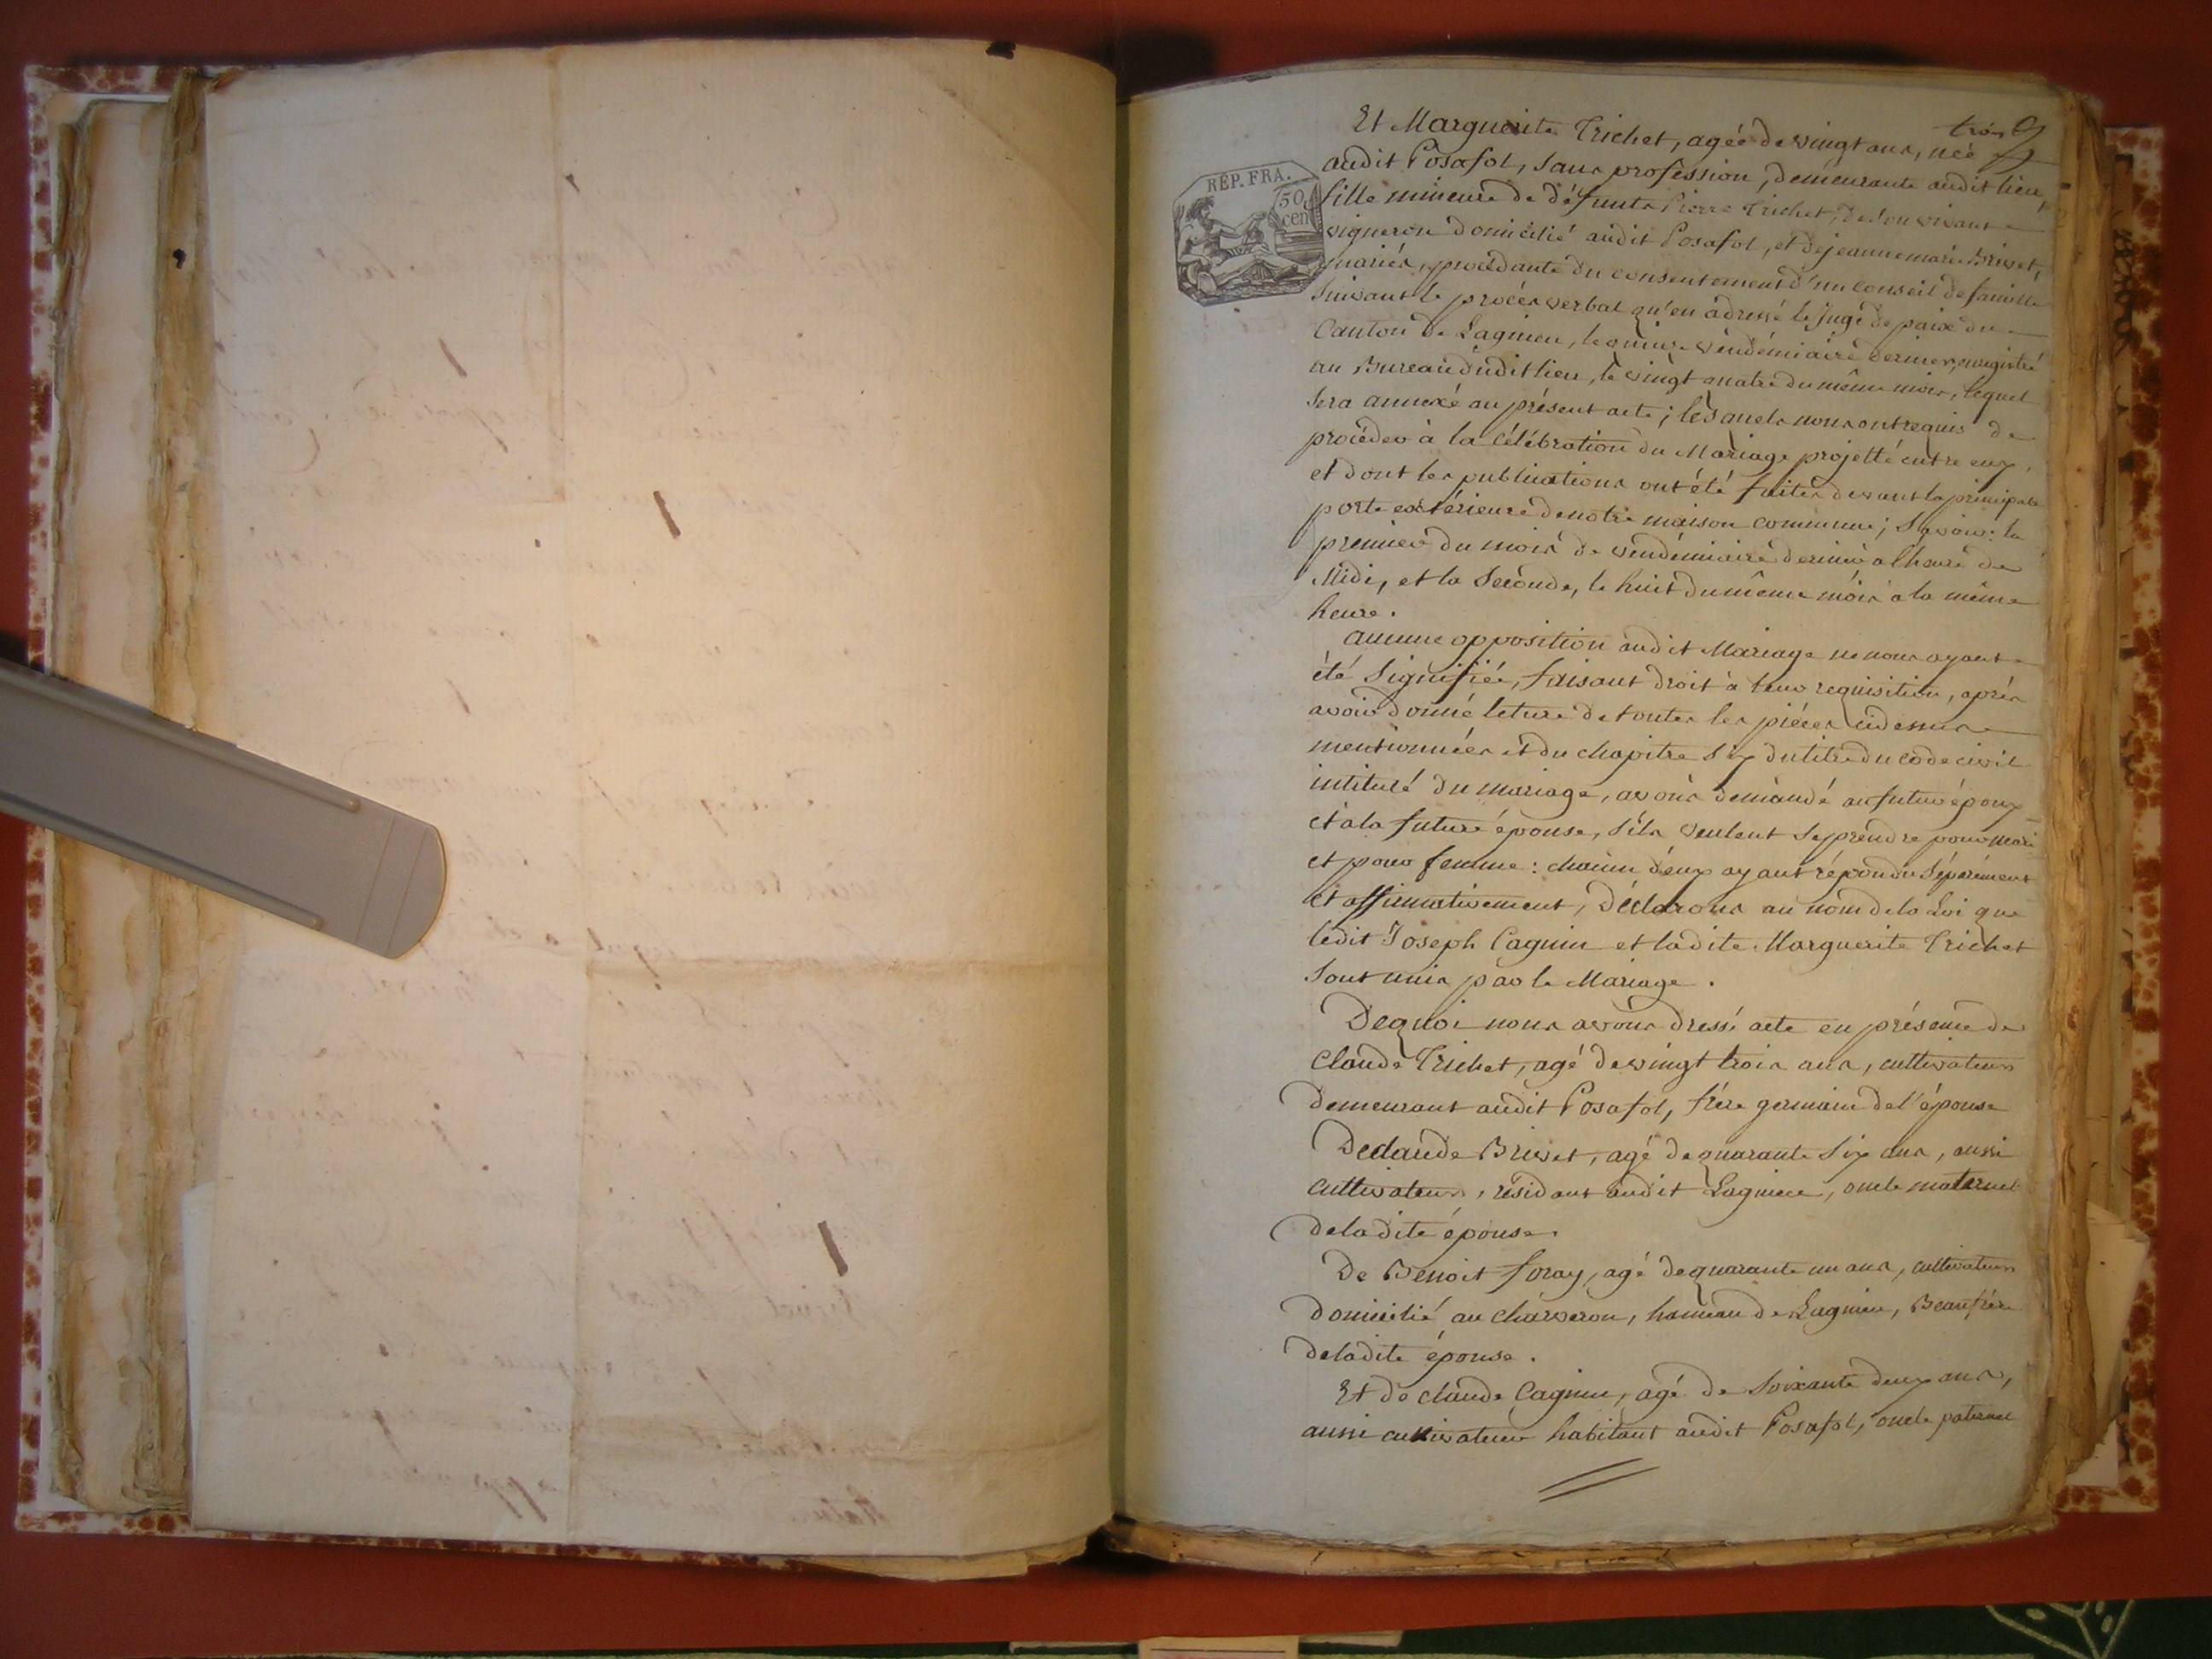 trois
Et Marguerite Trichet, agée de vingt ans, née
audit Posafol, sans profession, demeurante audit lieu,
RÉP. FRA.
50
cen
fille mineure de défunts Pierre Trichet, de son vivant
vigneron domicilié audit Posafol, et de jeanne marie Brivet,
mariés, procédante du consentement d'un conseil de famille
suivant le procès verbal qu'en a dressé le Juge de paix du
Canton de Lagnieu, le vendémiaire dernier, enregistré
au Bureau dudit lieu, le vingt quatre du même mois, lequel
sera annexé au présent acte; lesquels nous ont requis de
procéder à la célébration du Mariage projetté entre eux,
et dont les publications ont été faites devant la principale
porte extérieure de notre maison commune; Savoir: la
premiere du mois de vendémiaire dernier a lheure de
Midi, et la seconde, le huit du même mois a la même
heure.
aucune opposition audit Mariage ne nous ayant
été signifiée, faisant droit à leur requisition, après
avoir donné leture de toutes les pièces cidessus
mentionnées et du chapitre six du titre du code civil
intitulé du mariage, avons demandé au futur époux
et à la future épouse, s'ils veulent se prendre pour mari
et pour femme: chacun d'eux ayant répondu séparément
et affirmativement, déclarons au nom de la Loi que
ledit Joseph Cagnin et ladite Marguerite Trichet
sont unis par le Mariage.
De quoi nous avons dressé acte en présence de
Claude Trichet, agé de vingt trois ans, cultivateur
demeurant audit Posafol, frère germain de l'épouse
De claude Brivet, agé de quarante six ans, aussi
cultivateur, résidant audit Lagnieu, oncle maternel
de ladite épouse.
De Benoit foray, agé de quarante un ans, cultivateur
domicilié au charveron, hameau de Lagnieu, Beaufrère
de ladite épouse.
Et de claude Cagnin, agé de soixante deux ans,
aussi cultivateur habitant audit Posafol, oncle paternel